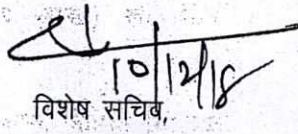 10/12/18
विशेष सचिव,